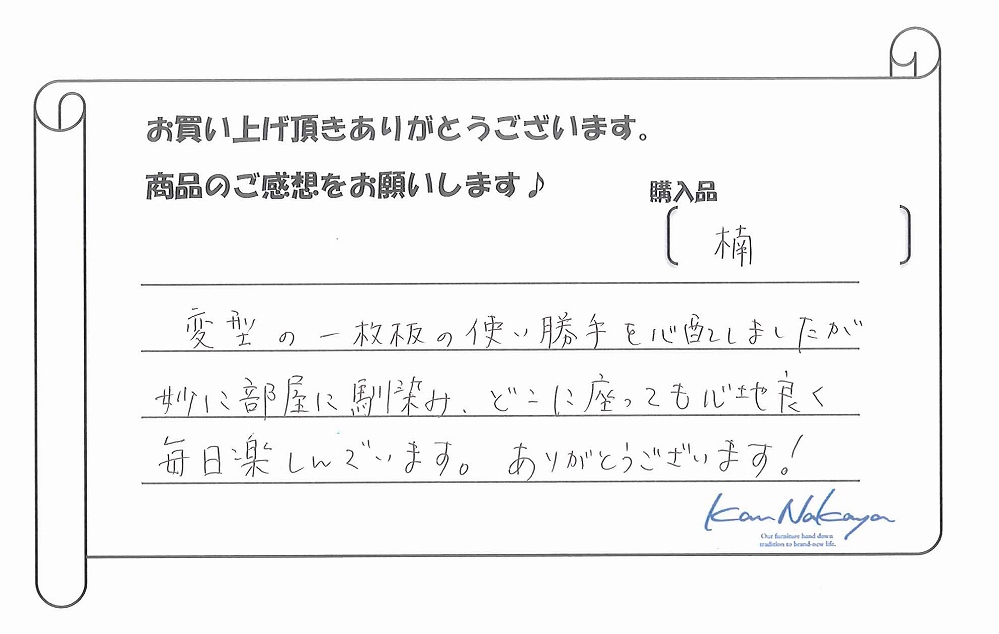 お買い上げ頂きありがとうございます。
商品のご感想をお願いします♪
購入品
楠
変型の一枚板の使い勝手を心配しましたが
妙に部屋に馴染み、どこに座っても心地良く
毎日楽しんでいます。ありがとうございます!
Kan Nakaya
Our furniture hand down
tradition to brand-new life.